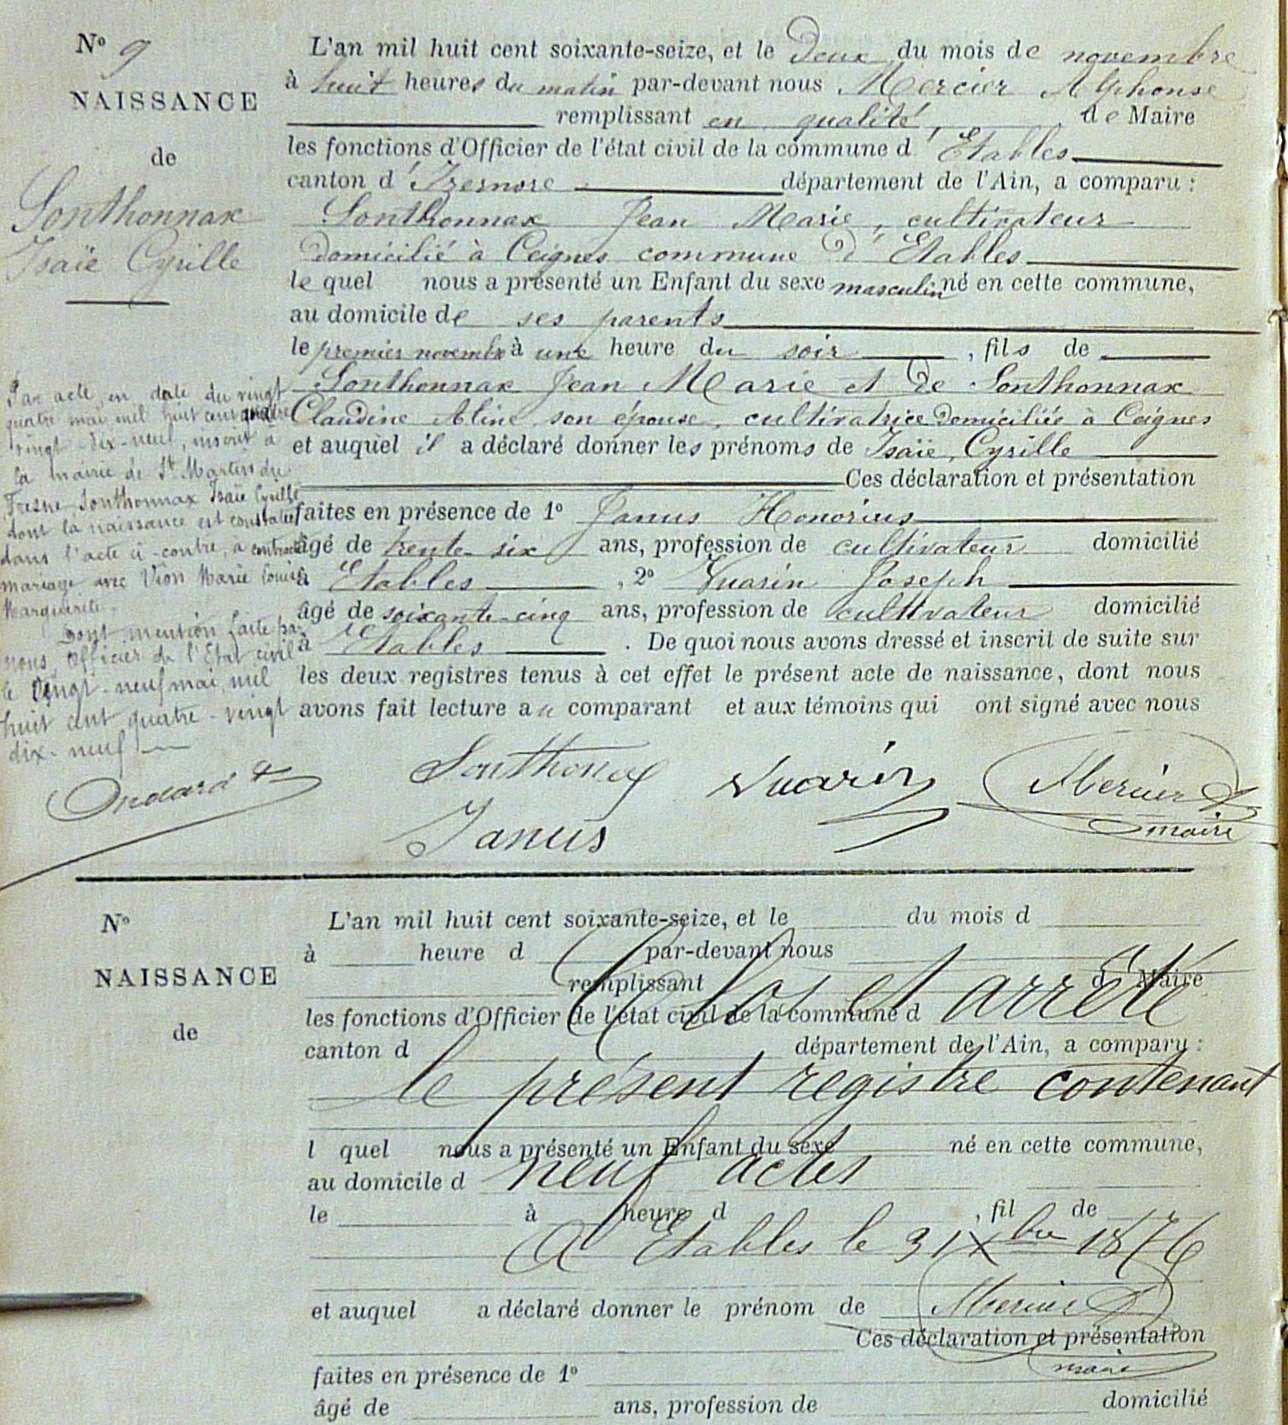 N° 9
NAISSANCE
de
Sonthonnax
Isaïe Cyrille
L'an mil huit cent soixante-seize, et le Deux du mois de novembre
à huit heures du matin par-devant nous Mercier Alphonse
remplissant en qualité, de Maire
les fonctions d'Officier de l'état civil de la commune d'Etables
canton d'Izernore département de l'Ain, a comparu :
Sonthonnax Jean Marie, cultivateur
domicilié à Ceignes commune d'Etables
le quel nous a présenté un Enfant du sexe masculin né en cette commune,
au domicile de ses parents
le premier novembre à une heure du soir , fils de
Sonthonnax Jean Marie et de Sonthonnax
Claudine Aline son épouse, cultivatrice domiciliée à Ceignes
et auquel il a déclaré donner les prénoms de Isaïe, Cyrille
Ces déclaration et présentation
faites en présence de 1° Janus Honorius
âgé de trente-six ans, profession de cultivateur domicilié
à Etables , 2° Vuarin Joseph
âgé de soixante-cinq ans, profession de cultivateur domicilié
à Etables . De quoi nous avons dressé et inscrit de suite sur
les deux registres tenus à cet effet le présent acte de naissance, dont nous
avons fait lecture au comparant et aux témoins qui ont signé avec nous
Par acte en date du vingt
quatre mai mil huit cent quatre
vingt dix-neuf, inscrit à
la mairie de St Martin du
Fresne, Sonthonnax Isaïe Cyrille
dont la naissance est constatée
dans l'acte ci-contre, a contracté
mariage avec Vion Marie Louise
Marguerite.
Dont mention faite par
nous, Officier de l'Etat civil
le vingt-neuf mai, mil
huit cent quatre-vingt
dix-neuf
Sonthonax Vuarin Mercier
Janus maire
N°
NAISSANCE
de
L'an mil huit cent soixante-seize, et le du mois d
à heure d par-devant nous
remplissant d Maire
Clos et arrêté
les fonctions d'Officier de l'état civil de la commune d
canton d département de l'Ain, a comparu :
le présent registre contenant
l quel nous a présenté un Enfant du sexe né en cette commune,
neuf actes
au domicile d
le à heure d , fil de
A Etables le 31 Xbre 1876
et auquel a déclaré donner le prénom de
Mercier
Ces déclaration et présentation
maire
faites en présence de 1°
âgé de ans, profession de domicilié